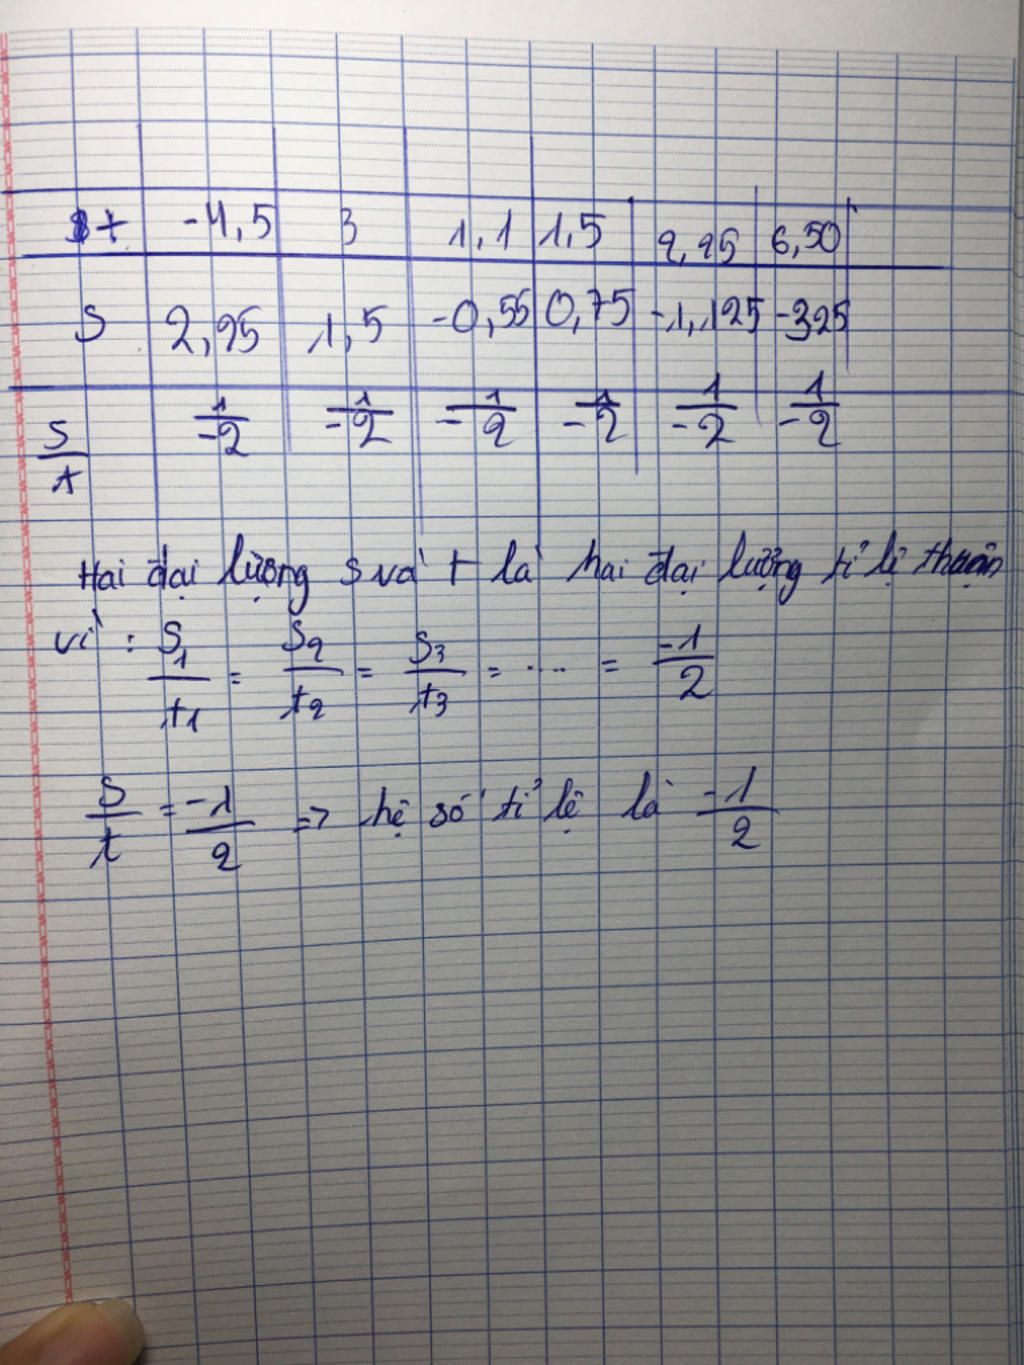 t -4,5 3 1,1 1,5 2,25 6,50
S 2,25 1,5 -0,55 0,75 -1,125 -325
S/t 1/-2 1/-2 1/-2 1/-2 1/-2 1/-2
Hai đại lượng s và t là hai đại lượng tỉ lệ thuận
vì : S1/t1 = S2/t2 = S3/t3 = .... = -1/2
S/t = -1/2 => hệ số tỉ lệ là -1/2